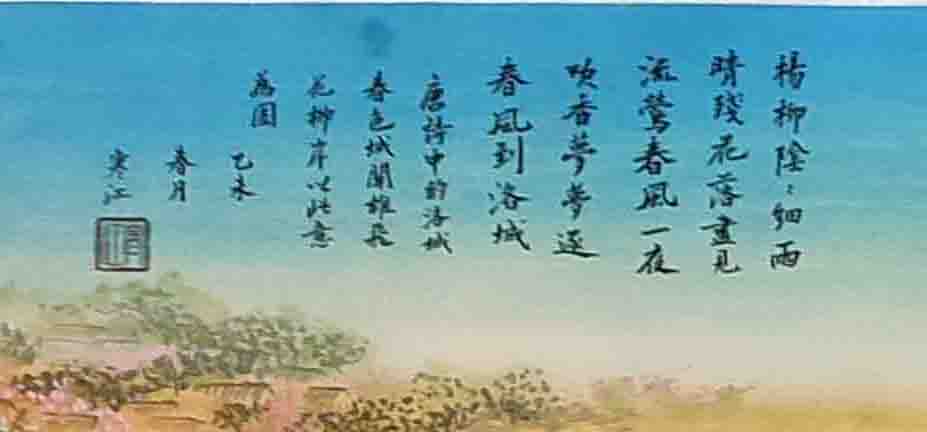 楊柳陰〻細雨
晴殘花落盡見
流鶯春風一夜
吹香夢夢逐
春風到洛城
唐詩中的洛城
春色城
花柳岸以此意
為图
乙未
春月
寒江